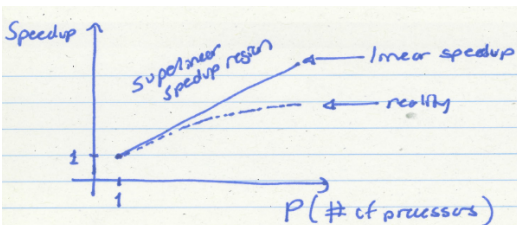 Speedup
superlinear
speedup region
linear speedup
reality
1
1
P (# of processors)